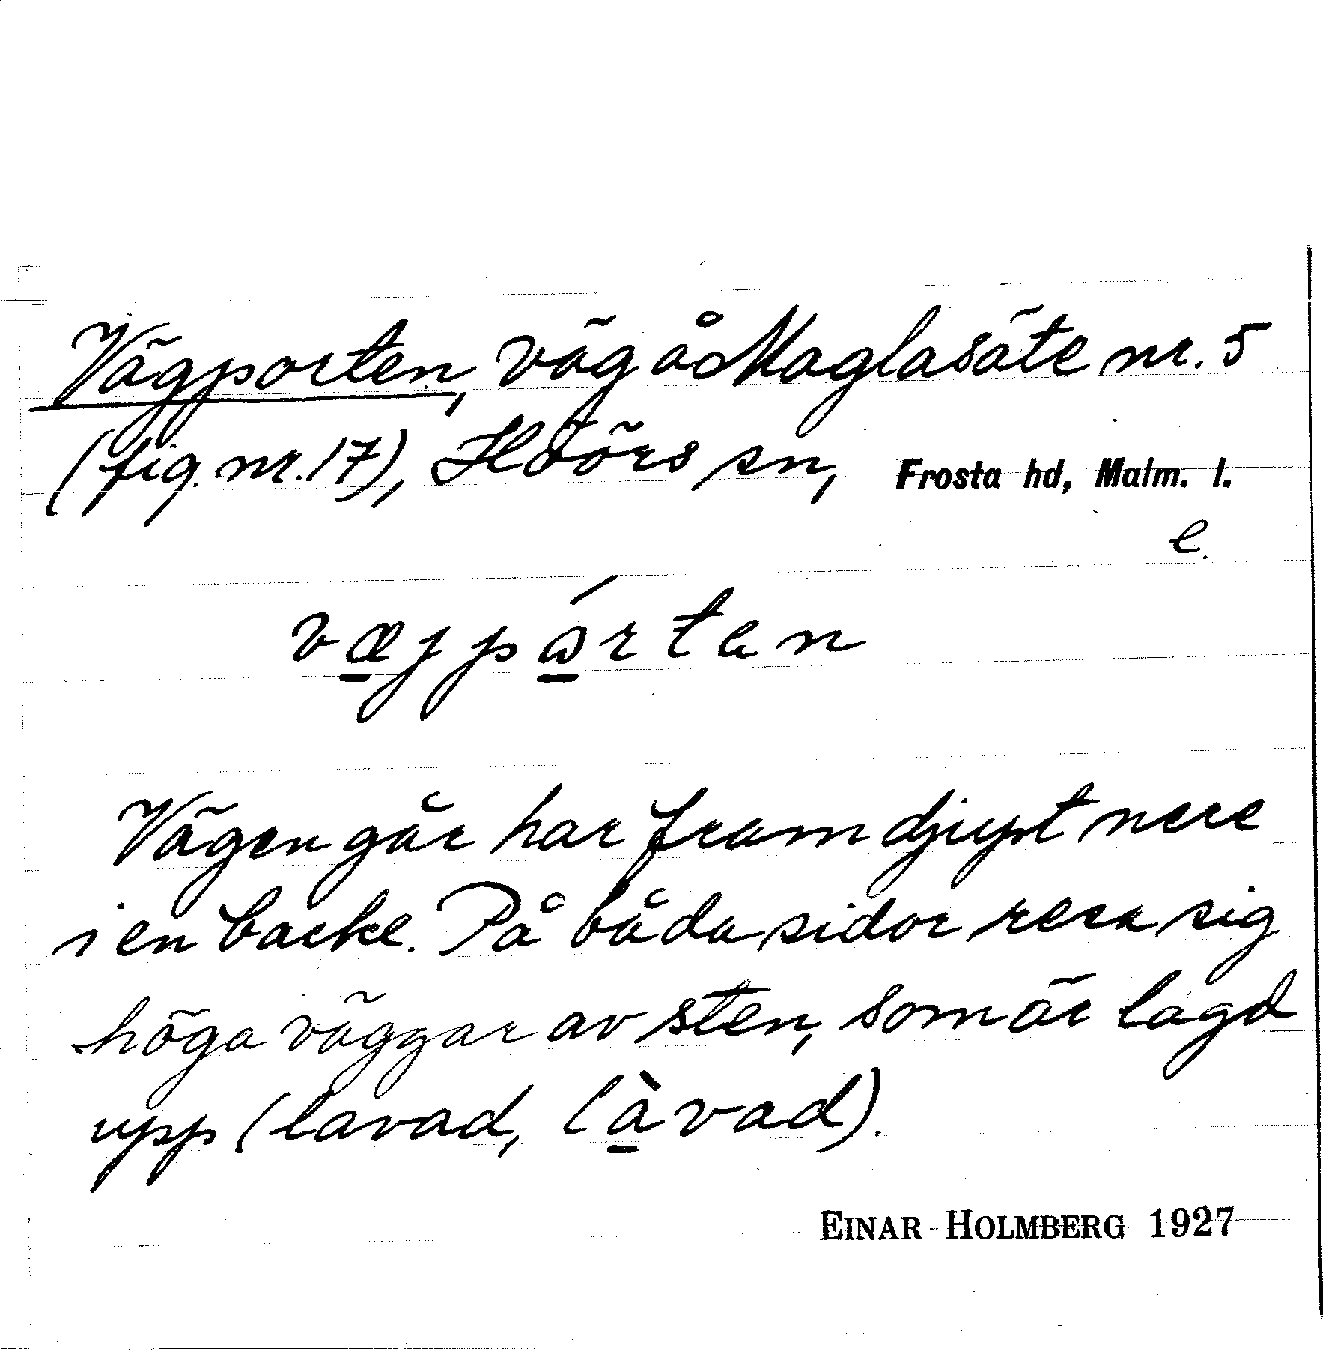 Vägporten, väg å Maglasäte nr. 5
(fig. nr. 17), Höörs sn, Frosta hd, Malm. l.
e.
væjpɷ́rtən
Vägen går har fram djupt nere
i en backe. På båda sidor resa sig
höga väggar av sten, som är lagd
upp (lavad, làvad).
EINAR HOLMBERG 1927